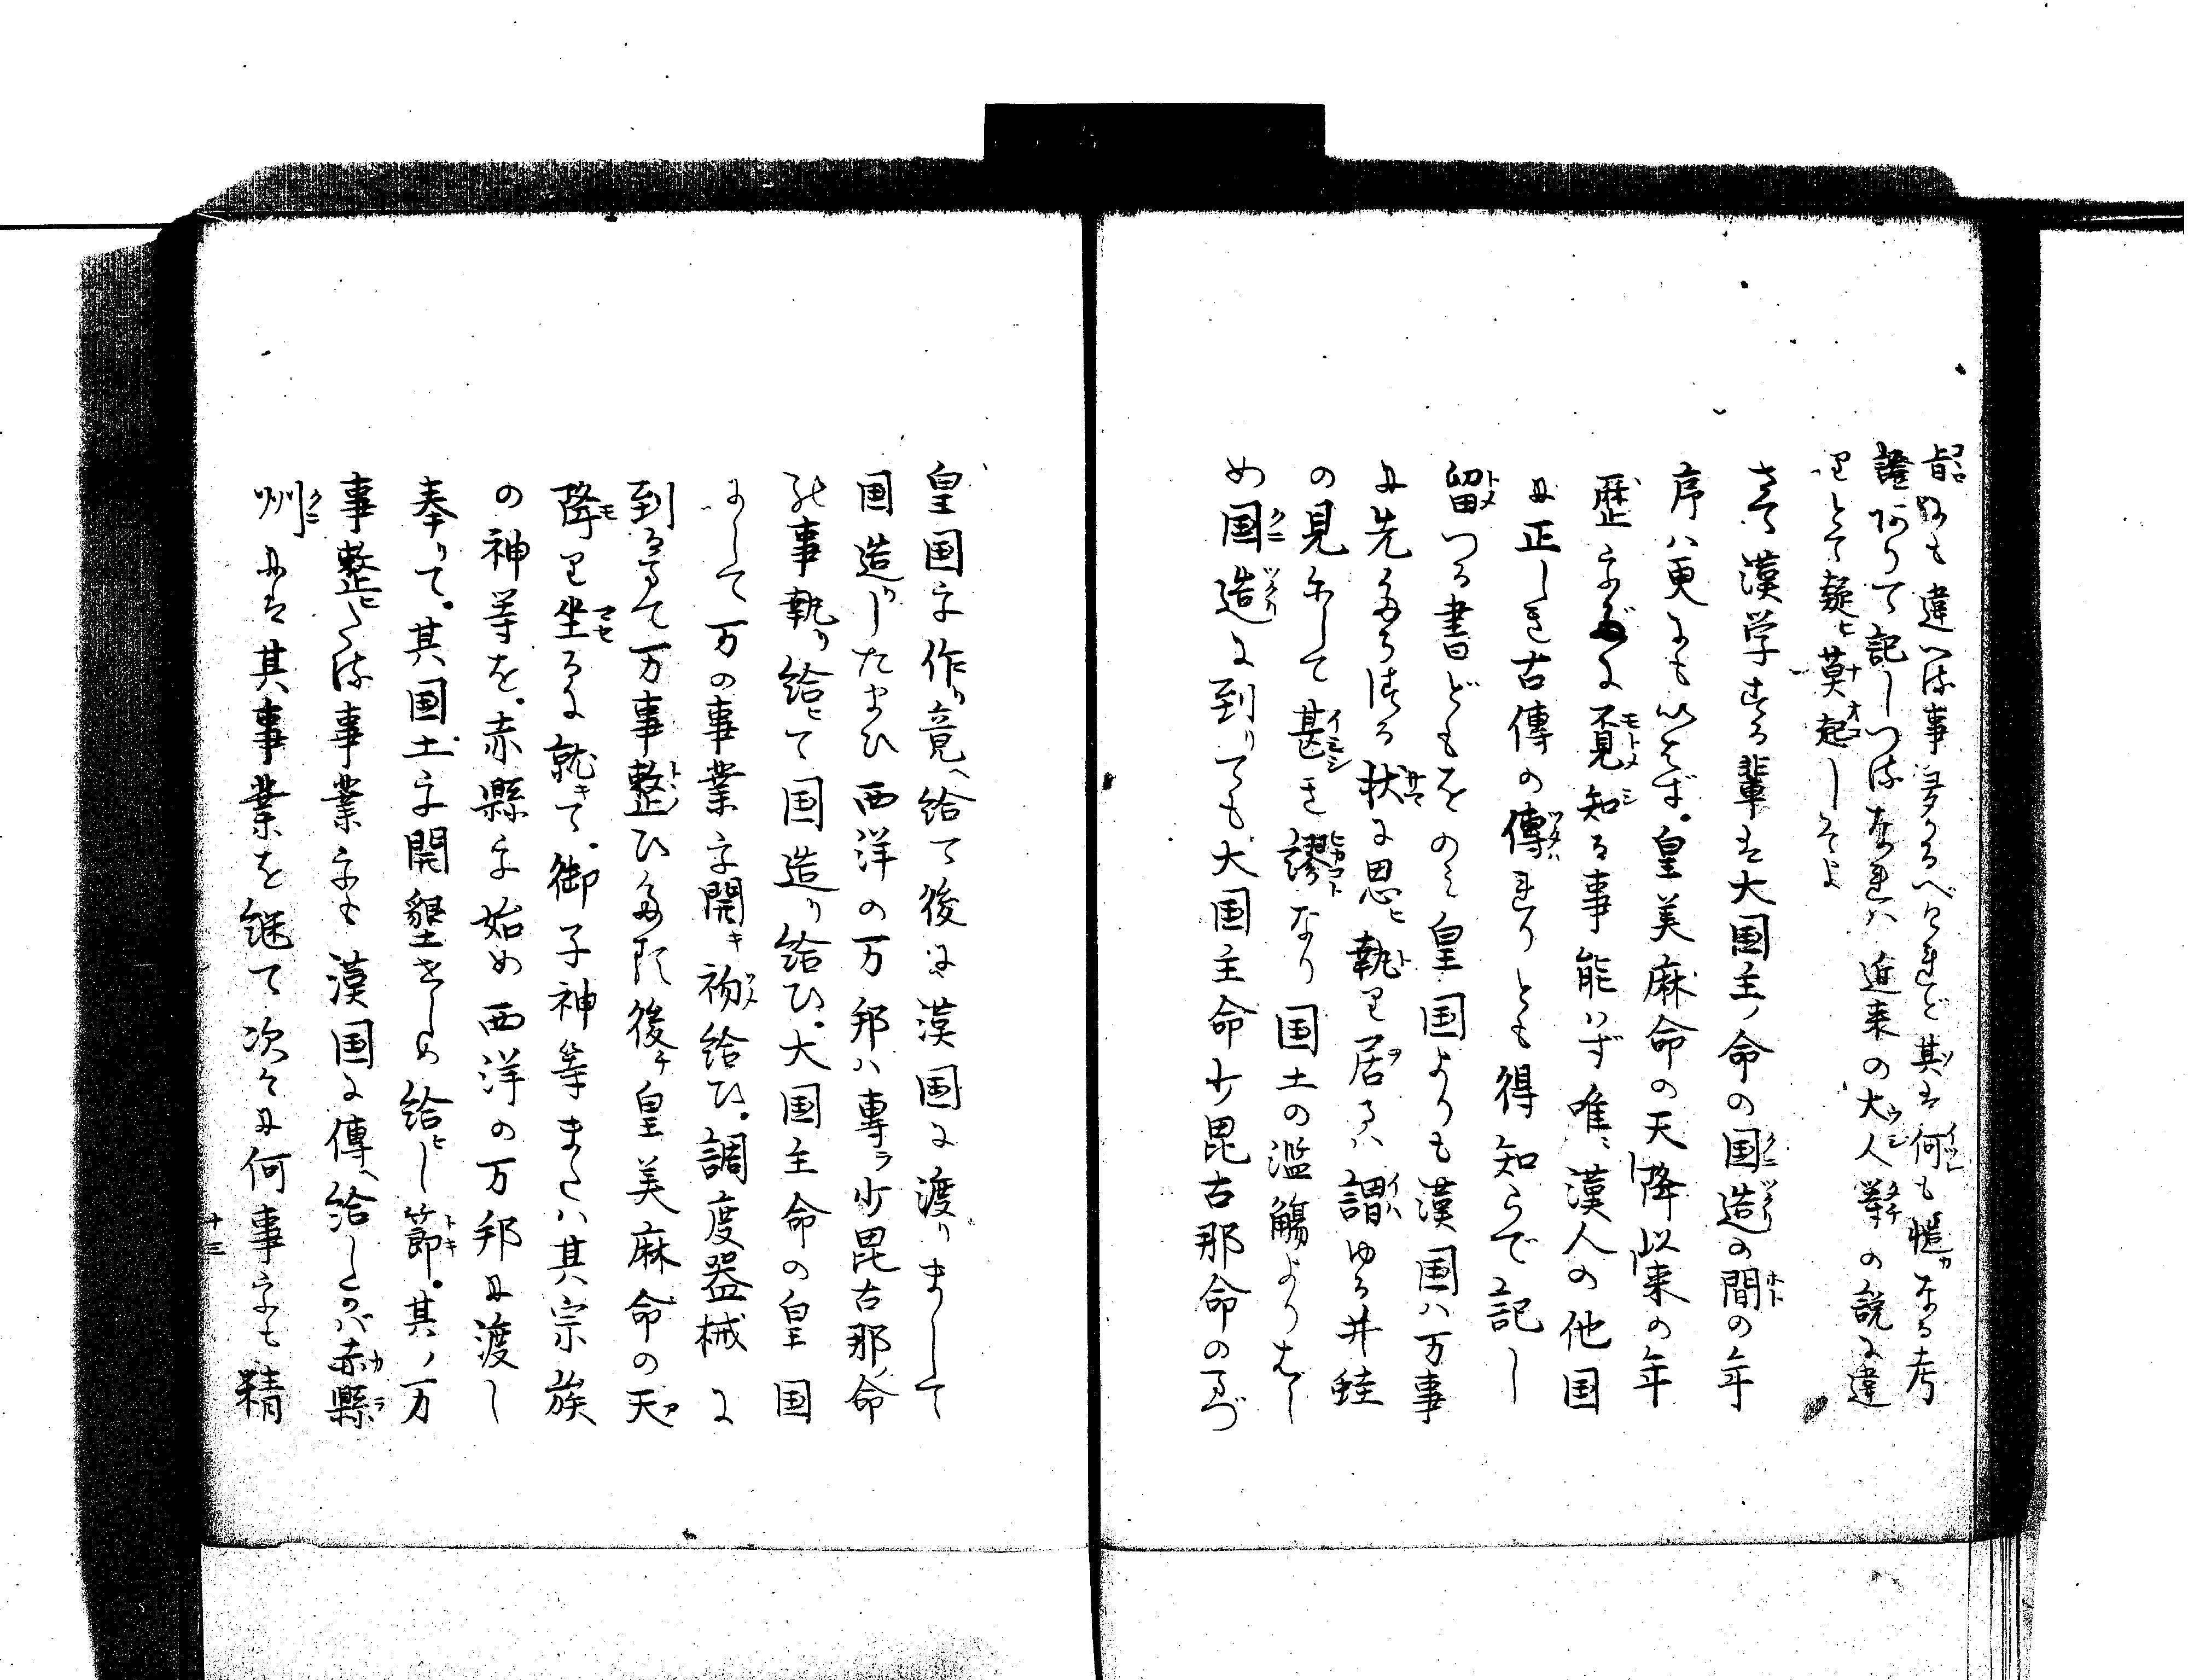 旨趣も違へる事多かるべけれど其は何も慥なる考
證阿りて記しつるなれハ近来の大人等の説に違
りとて疑ヒ莫起しそよ
さて漢学する輩は大国主ノ命の国造の間の年
序ハ更にも以はず。皇美麻命の天降以来の年
歴をだに覓知る事能はず唯漢人の他国
に正しき古傳の傳れりとも得知らで記し
留つる書どもをのみ皇国よりも漢国ハ万事
に先だちつる状に思ヒ執り居るハ謂ゆる井蛙
の見にして甚き謬なり国土の濫觴よりはし
め国造に到りても大国主命少毘古那命のまづ
皇国を作り竟へ給て後に漢国に渡りまして
国造りしたまひ西洋の万邦ハ専ラ少毘古那ノ命
の事執り給ヒて国造り給ひ。大国主命の皇国
にして万の事業を開キ初給ひ。調度器械に
到るまて万事整ひたる後チ皇美麻命の天
降り坐るに就きて。御子神等または其宗族
の神等を。赤縣を始め西洋の万邦に渡し
奉りて。其国土を開墾さしめ給ヒし節。其ノ万
事整ヒたる事業をも漢国に傳へ給しかバ赤縣
州には其事業を継て次々に何事をも精
十三